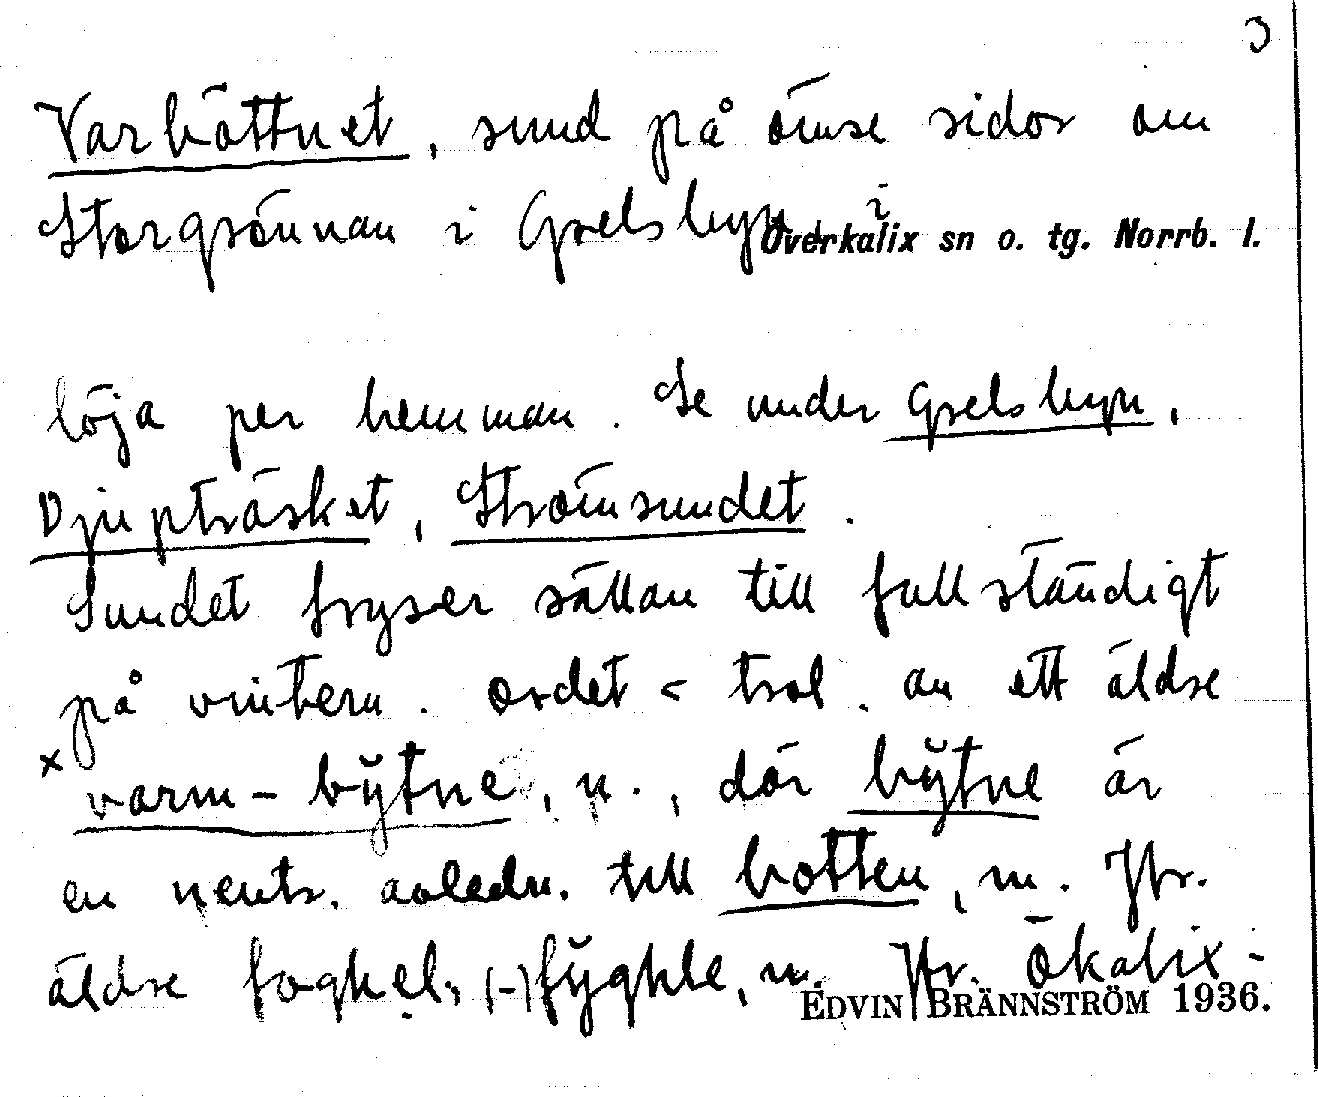 Varböttnet, sund på ömse sidor om
Storgrönnan i Grelsbyn i
Överkalix sn o. tg. Norrb. l.
löja per hemman. Se under Grelsbyn,
Djupträsket, Strömsundet.
Sundet fryser sällan till fullständigt
på vintern. Ordet < trol. au ett äldre
x varm-bўtne, n., där bўtne är
en neutr. avledn. till botten, m. Jfr.
äldre foghel, (-)fўghle, n. Jfr. Ökalix-
EDVIN BRÄNNSTRÖM 1936.